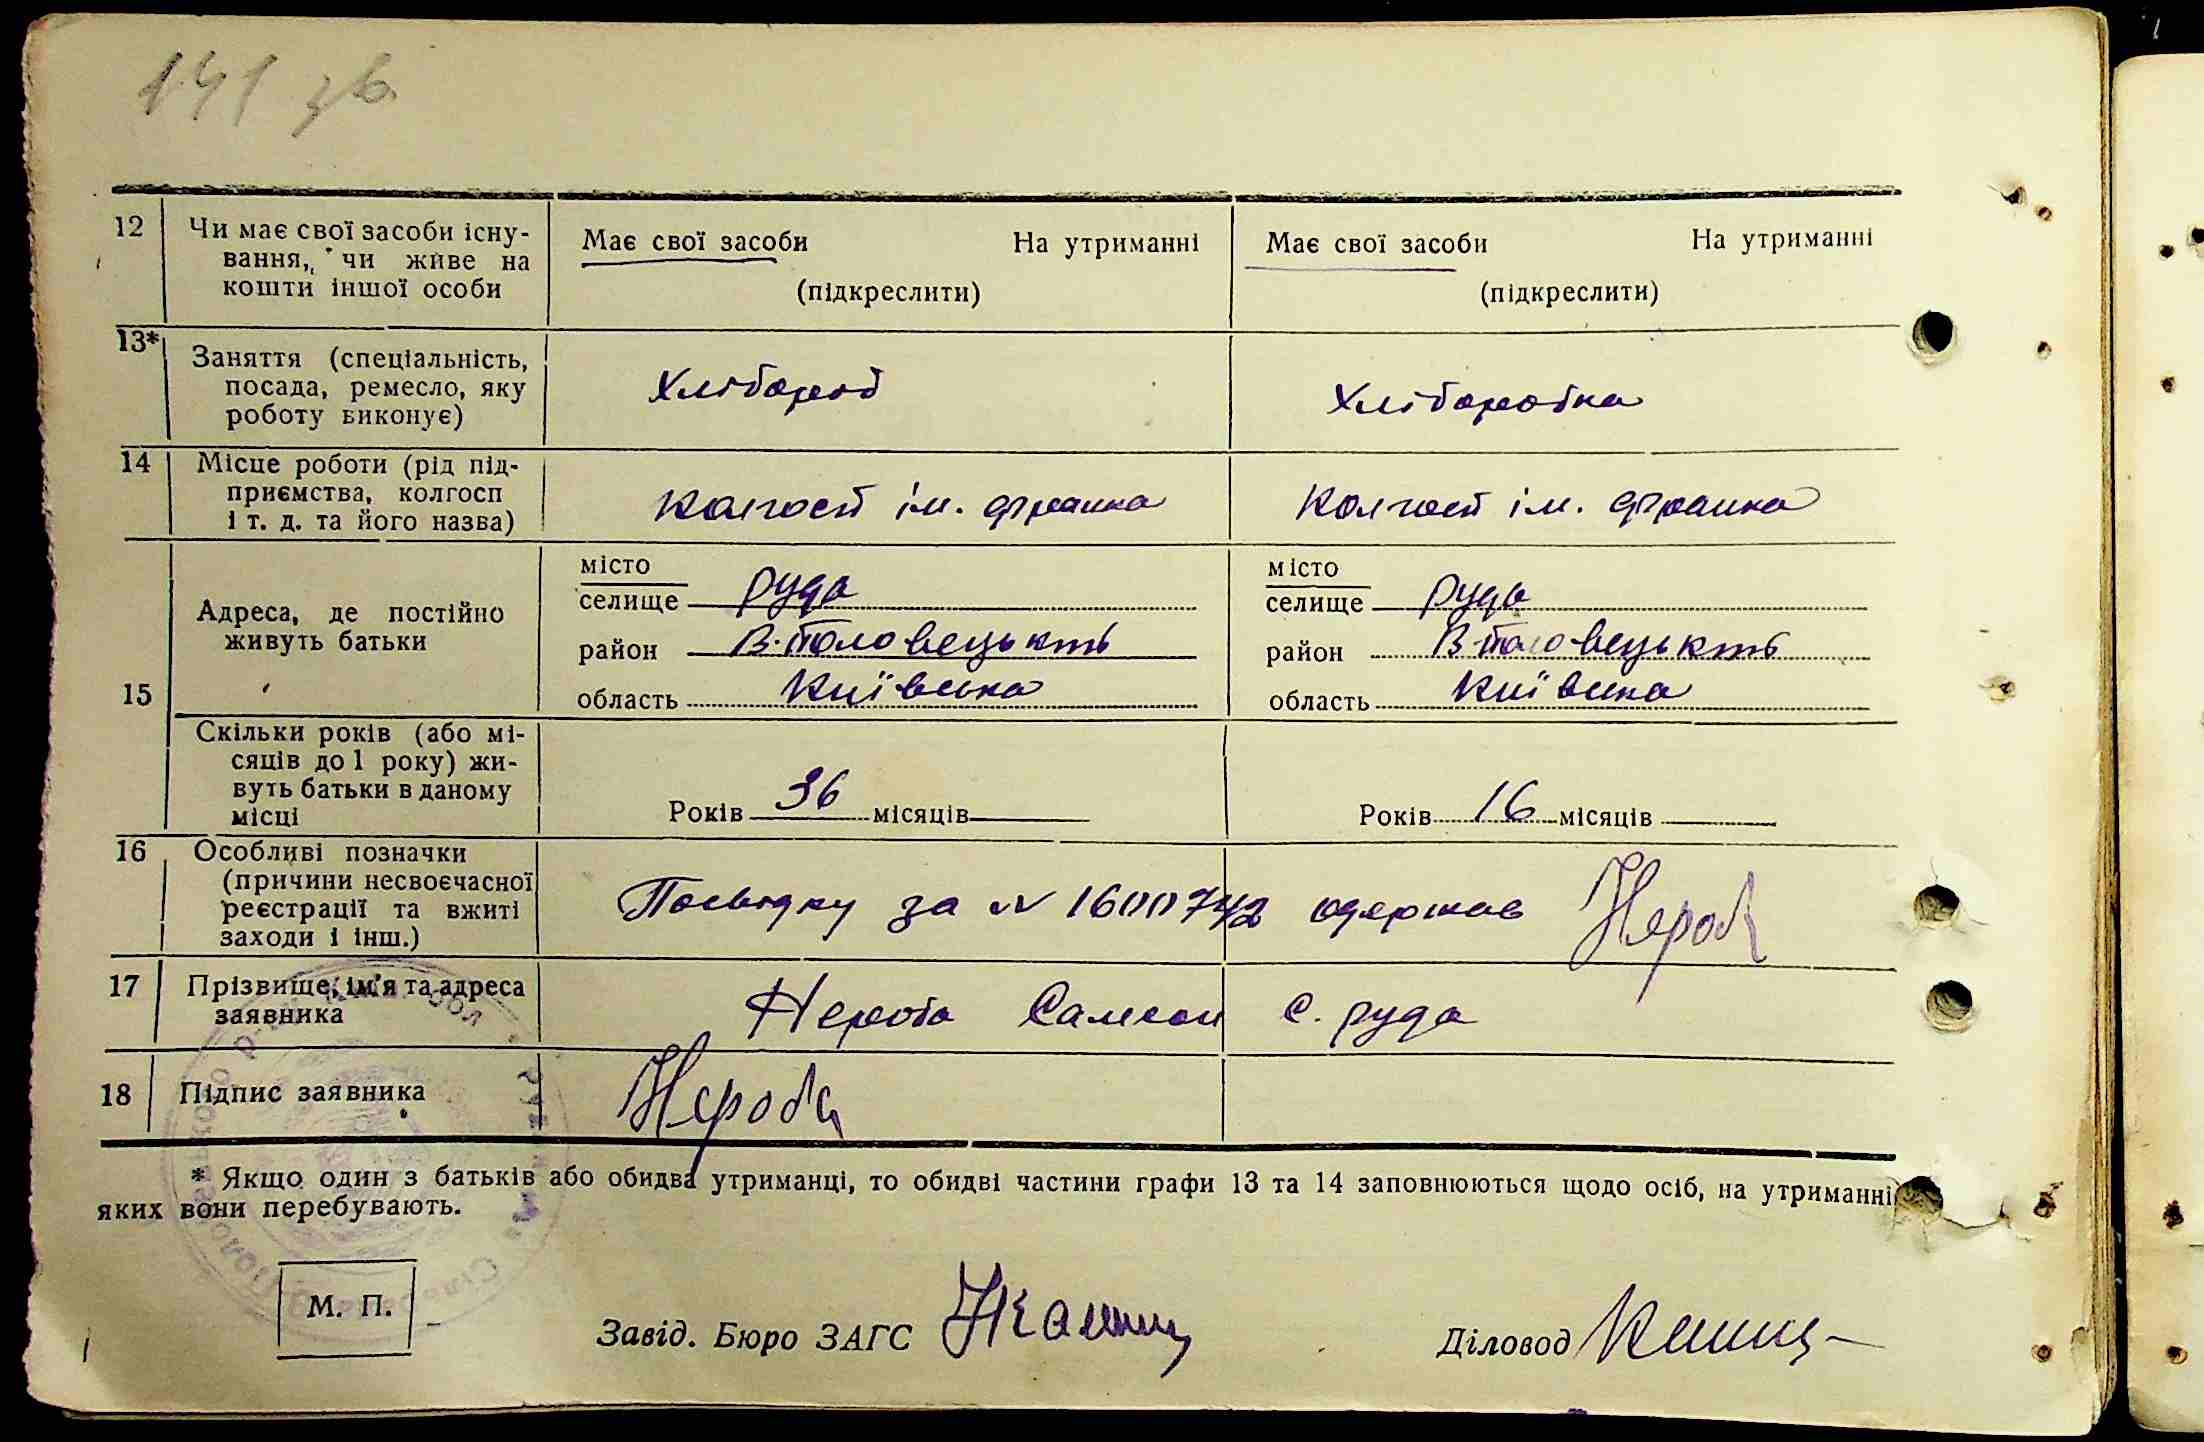 141 зв
12 Чи має свої засоби існу-
вання, чи живе на
кошти іншої особи
Має свої засоби На утриманні
(підкреслити)
Має свої засоби На утриманні
(підкреслити)
13* Заняття (спеціальність,
посада, ремесло, яку
роботу виконує)
Хлібороб
Хліборобка
14 Місце роботи (рід під-
приємства, колгосп
і т. д. та його назва)
Колгосп ім. Франка
Колгосп ім. Франка
15 Адреса, де постійно
живуть батьки
місто
селище Руда
район В-Половецькть
область Київська
місто
селище Руда
район В-Половецькть
область Київська
Скільки років (або мі-
сяців до 1 року) жи-
вуть батьки в даному
місці
Років 36 місяців
Років 16 місяців
16 Особливі позначки
(причини несвоєчасної
реєстрації та вжиті
заходи і інш.)
Посвідку за № 1600742 одержав Нероб
17 Прізвище, ім'я та адреса
заявника
Нероба Самсон с. Руда
18 Підпис заявника
Нероба
* Якщо один з батьків або обидва утриманці, то обидві частини графи 13 та 14 заповнюються щодо осіб, на утриманні
яких вони перебувають.
М. П.
Завід. Бюро ЗАГС
Діловод